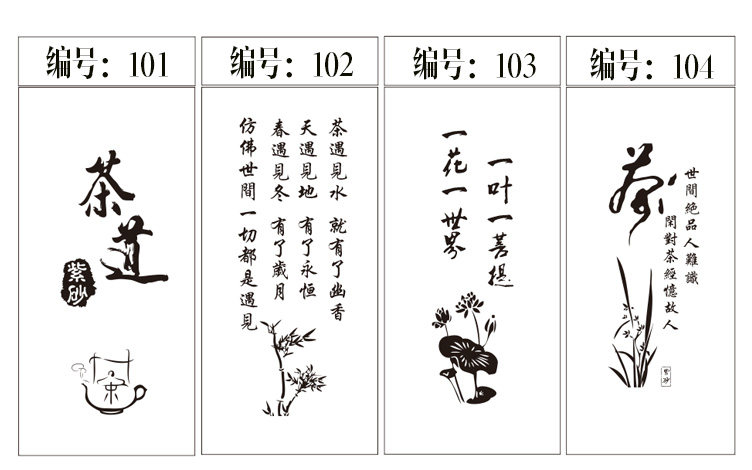 编号：101
茶道
紫砂
编号：102
茶遇見水 就有了幽香
天遇見地 有了永恒
春遇見冬 有了歲月
仿佛世間一切都是遇見
编号：103
一叶一菩提
一花一世界
编号：104
茶
世間絶品人難識
閑對茶經憶故人
紫砂